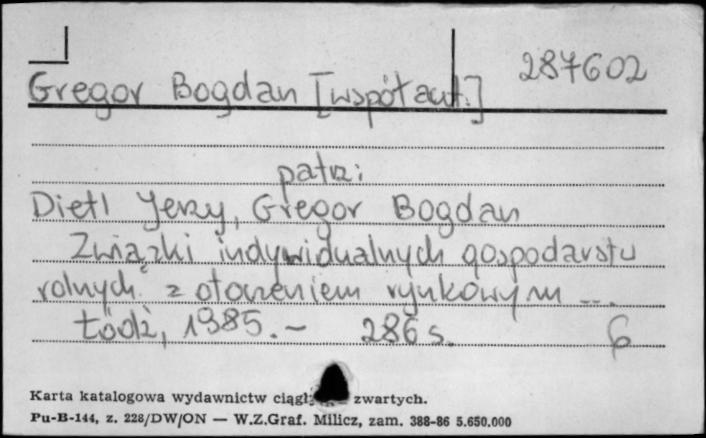 287602
Gregor Bogdan [współaut.]
patrz:
Dietl Jerzy, Gregor Bogdan
Związki indywidualnych gospodarstw
rolnych z otoczeniem rynkowym ...
Łódź, 1985. – 286 s. 6
Karta katalogowa wydawnictw zwartych.
Pu-B-144, z. 228/DW/ON — W.Z.Graf. Milicz, zam. 388-86 5.650.000